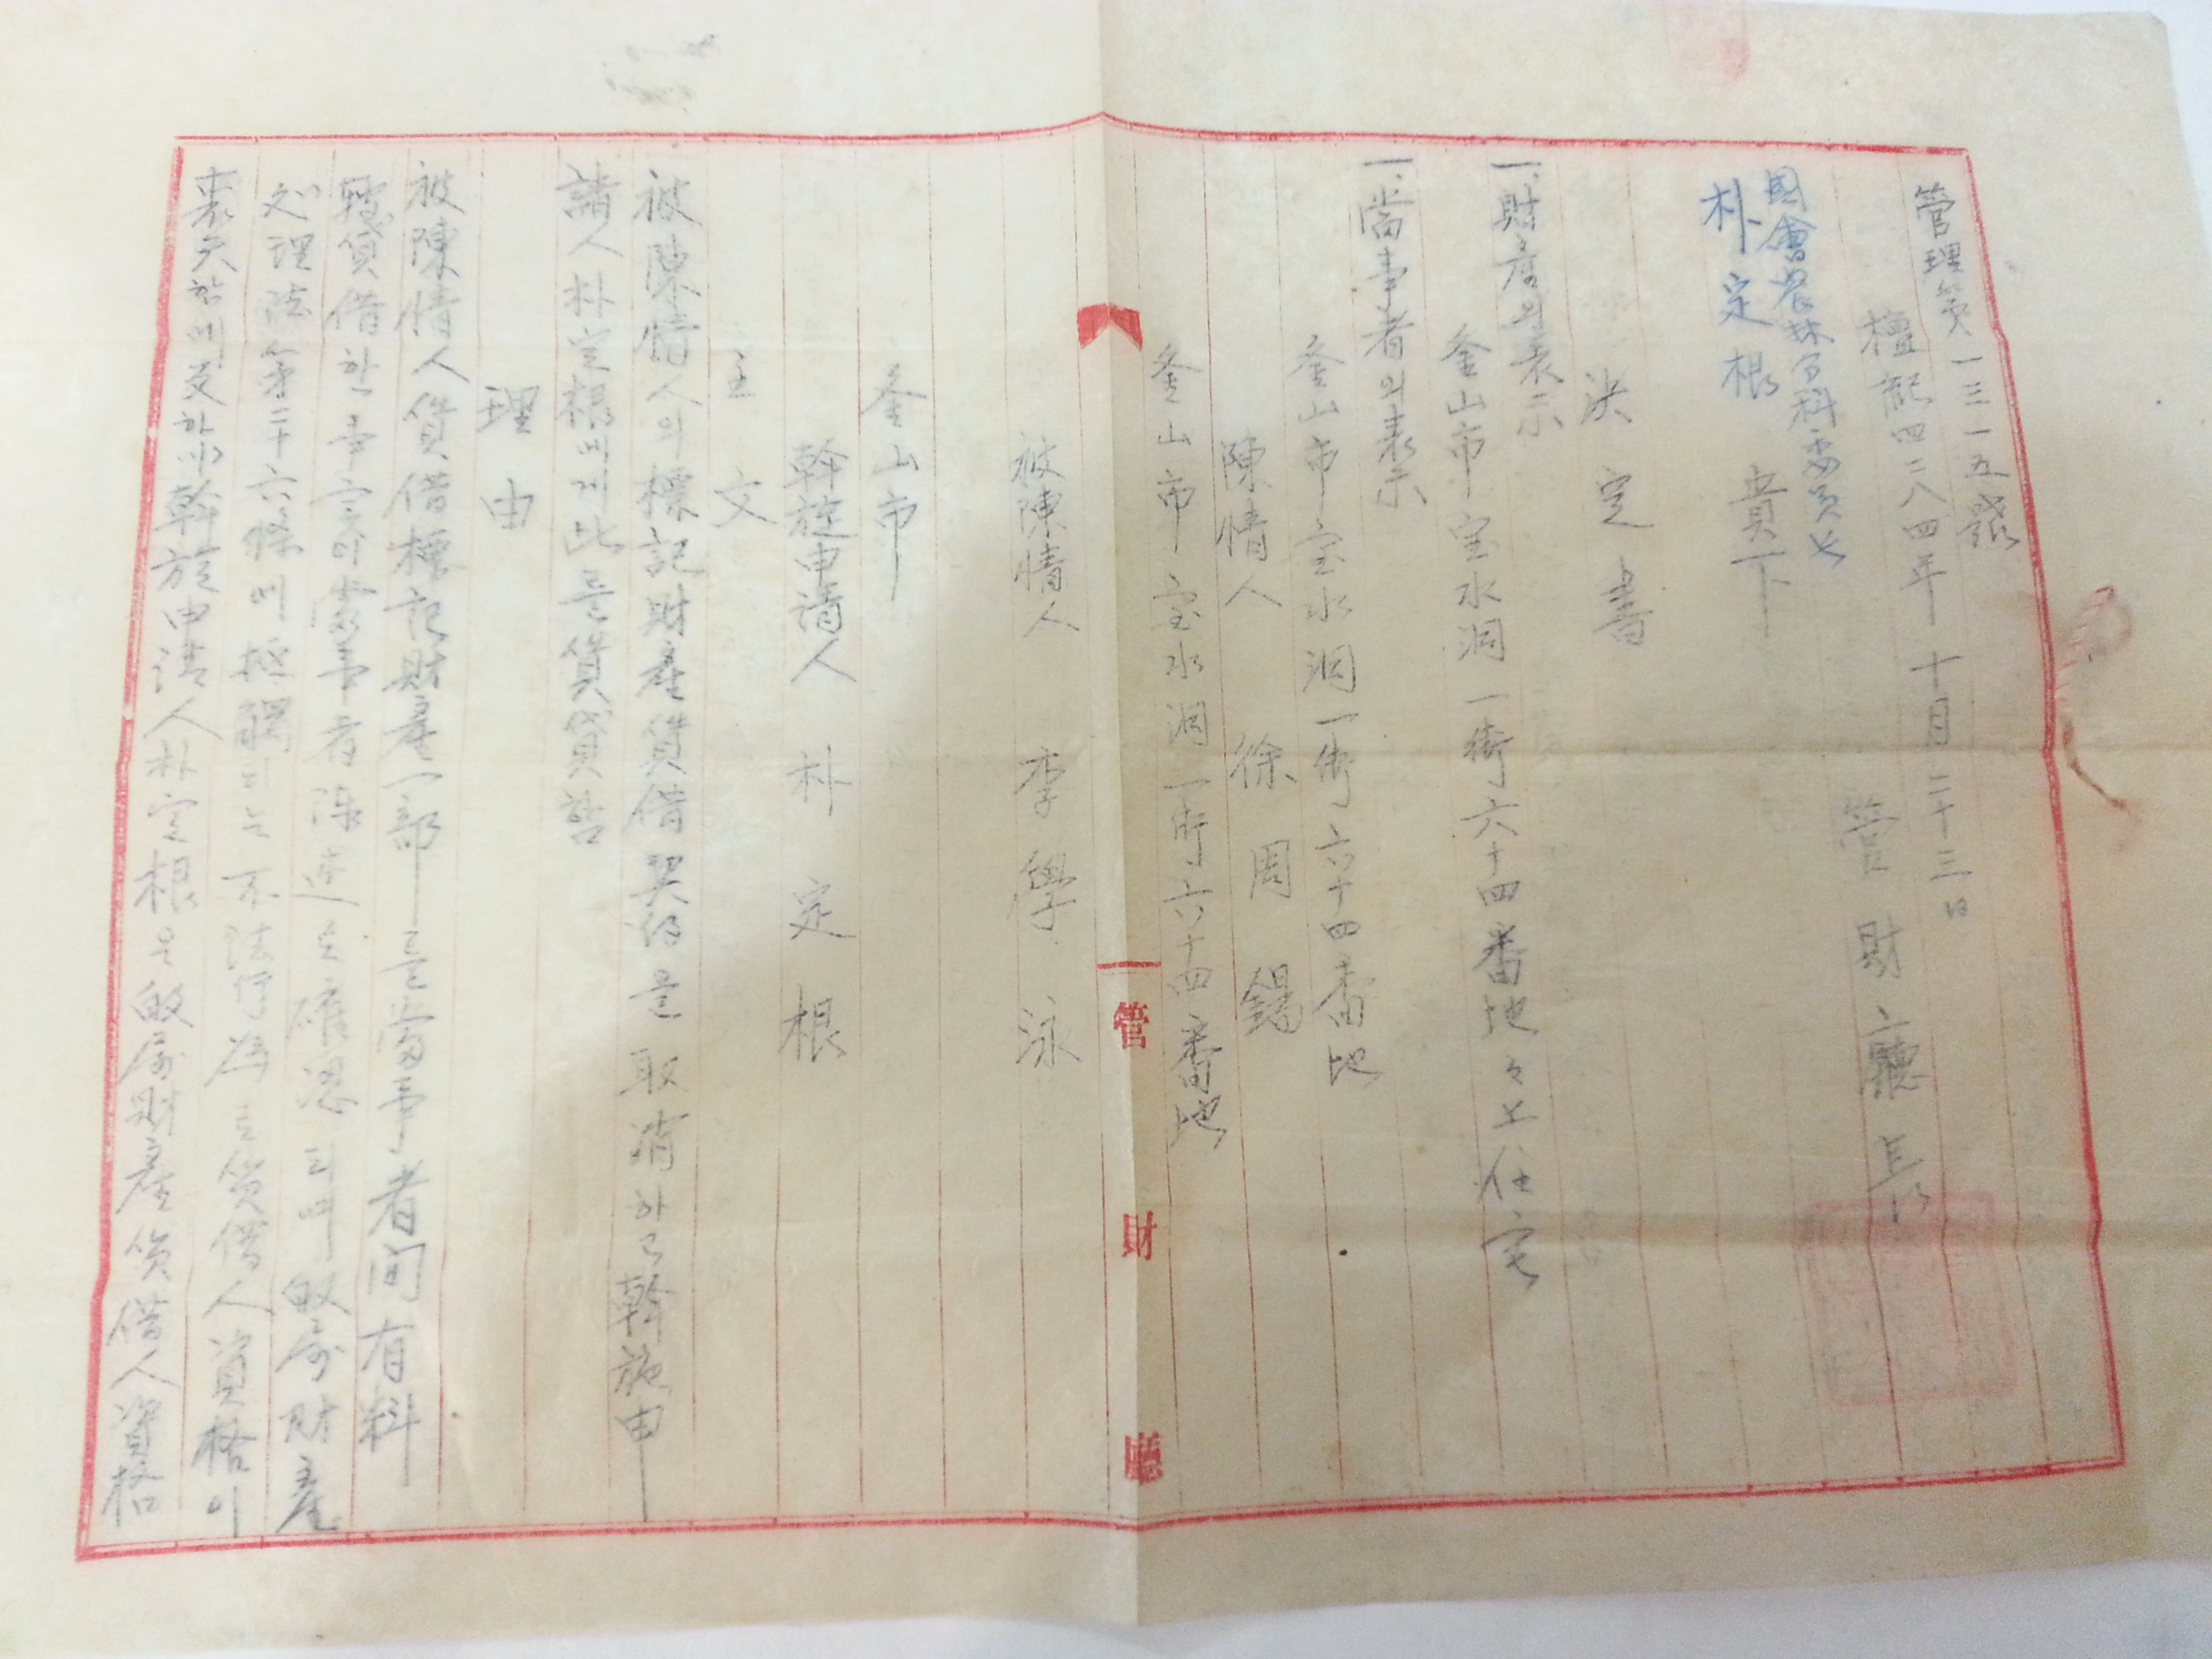 管理第一三一五號
檀記四二八四年 十月二十三日
管財廳長
國會農林分科委員長
朴定根 貴下
決定書
一、財産의表示
釜山市宝水洞一街六十四番地々上住宅
一、當事者의表示
釜山市宝水洞一街六十四番地
陳情人 徐周錫
釜山市宝水洞一街六十四番地
管財廳
被陳情人 李學泳
釜山市
斡旋申請人 朴定根
主文
被陳情人의標記財産賃借契約을取消하고斡旋申
請人朴定根에게此를賃貸함
理由
被陳情人賃借標記財産一部를當事者间有料
轉貸借한事실이當事者陳述로確認되며敀属財産
処理法第三十六條에抵觸되는不法行為로賃借人資格이
喪失함에及하야斡旋申請人朴定根은敀属財産賃借人資格